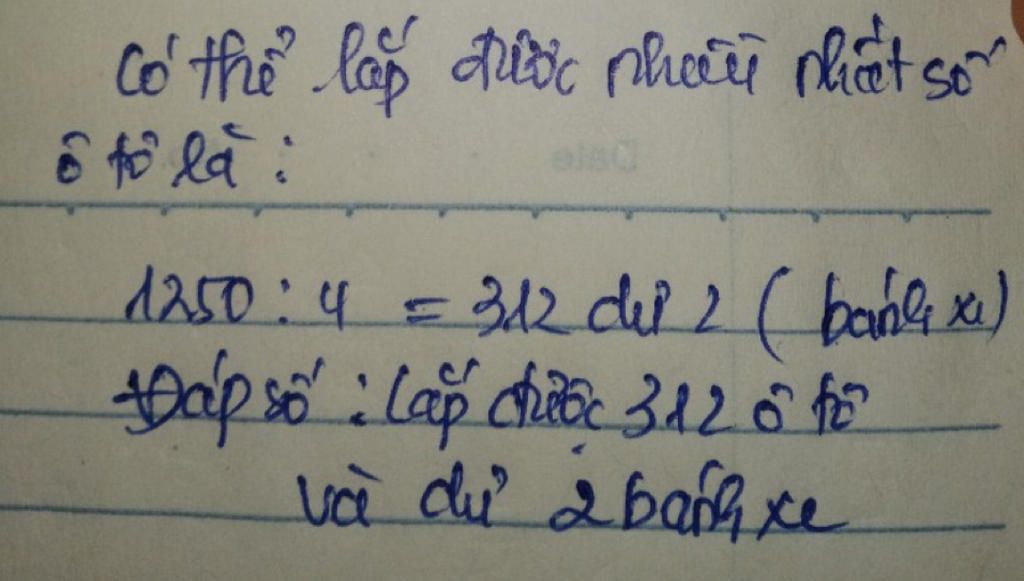 Có thể lắp được nhiều nhất số
ô tô là :
Date
1250 : 4 = 312 dư 2 ( bánh xe)
Đáp số : Lắp được 312 ô tô
và dư 2 bánh xe